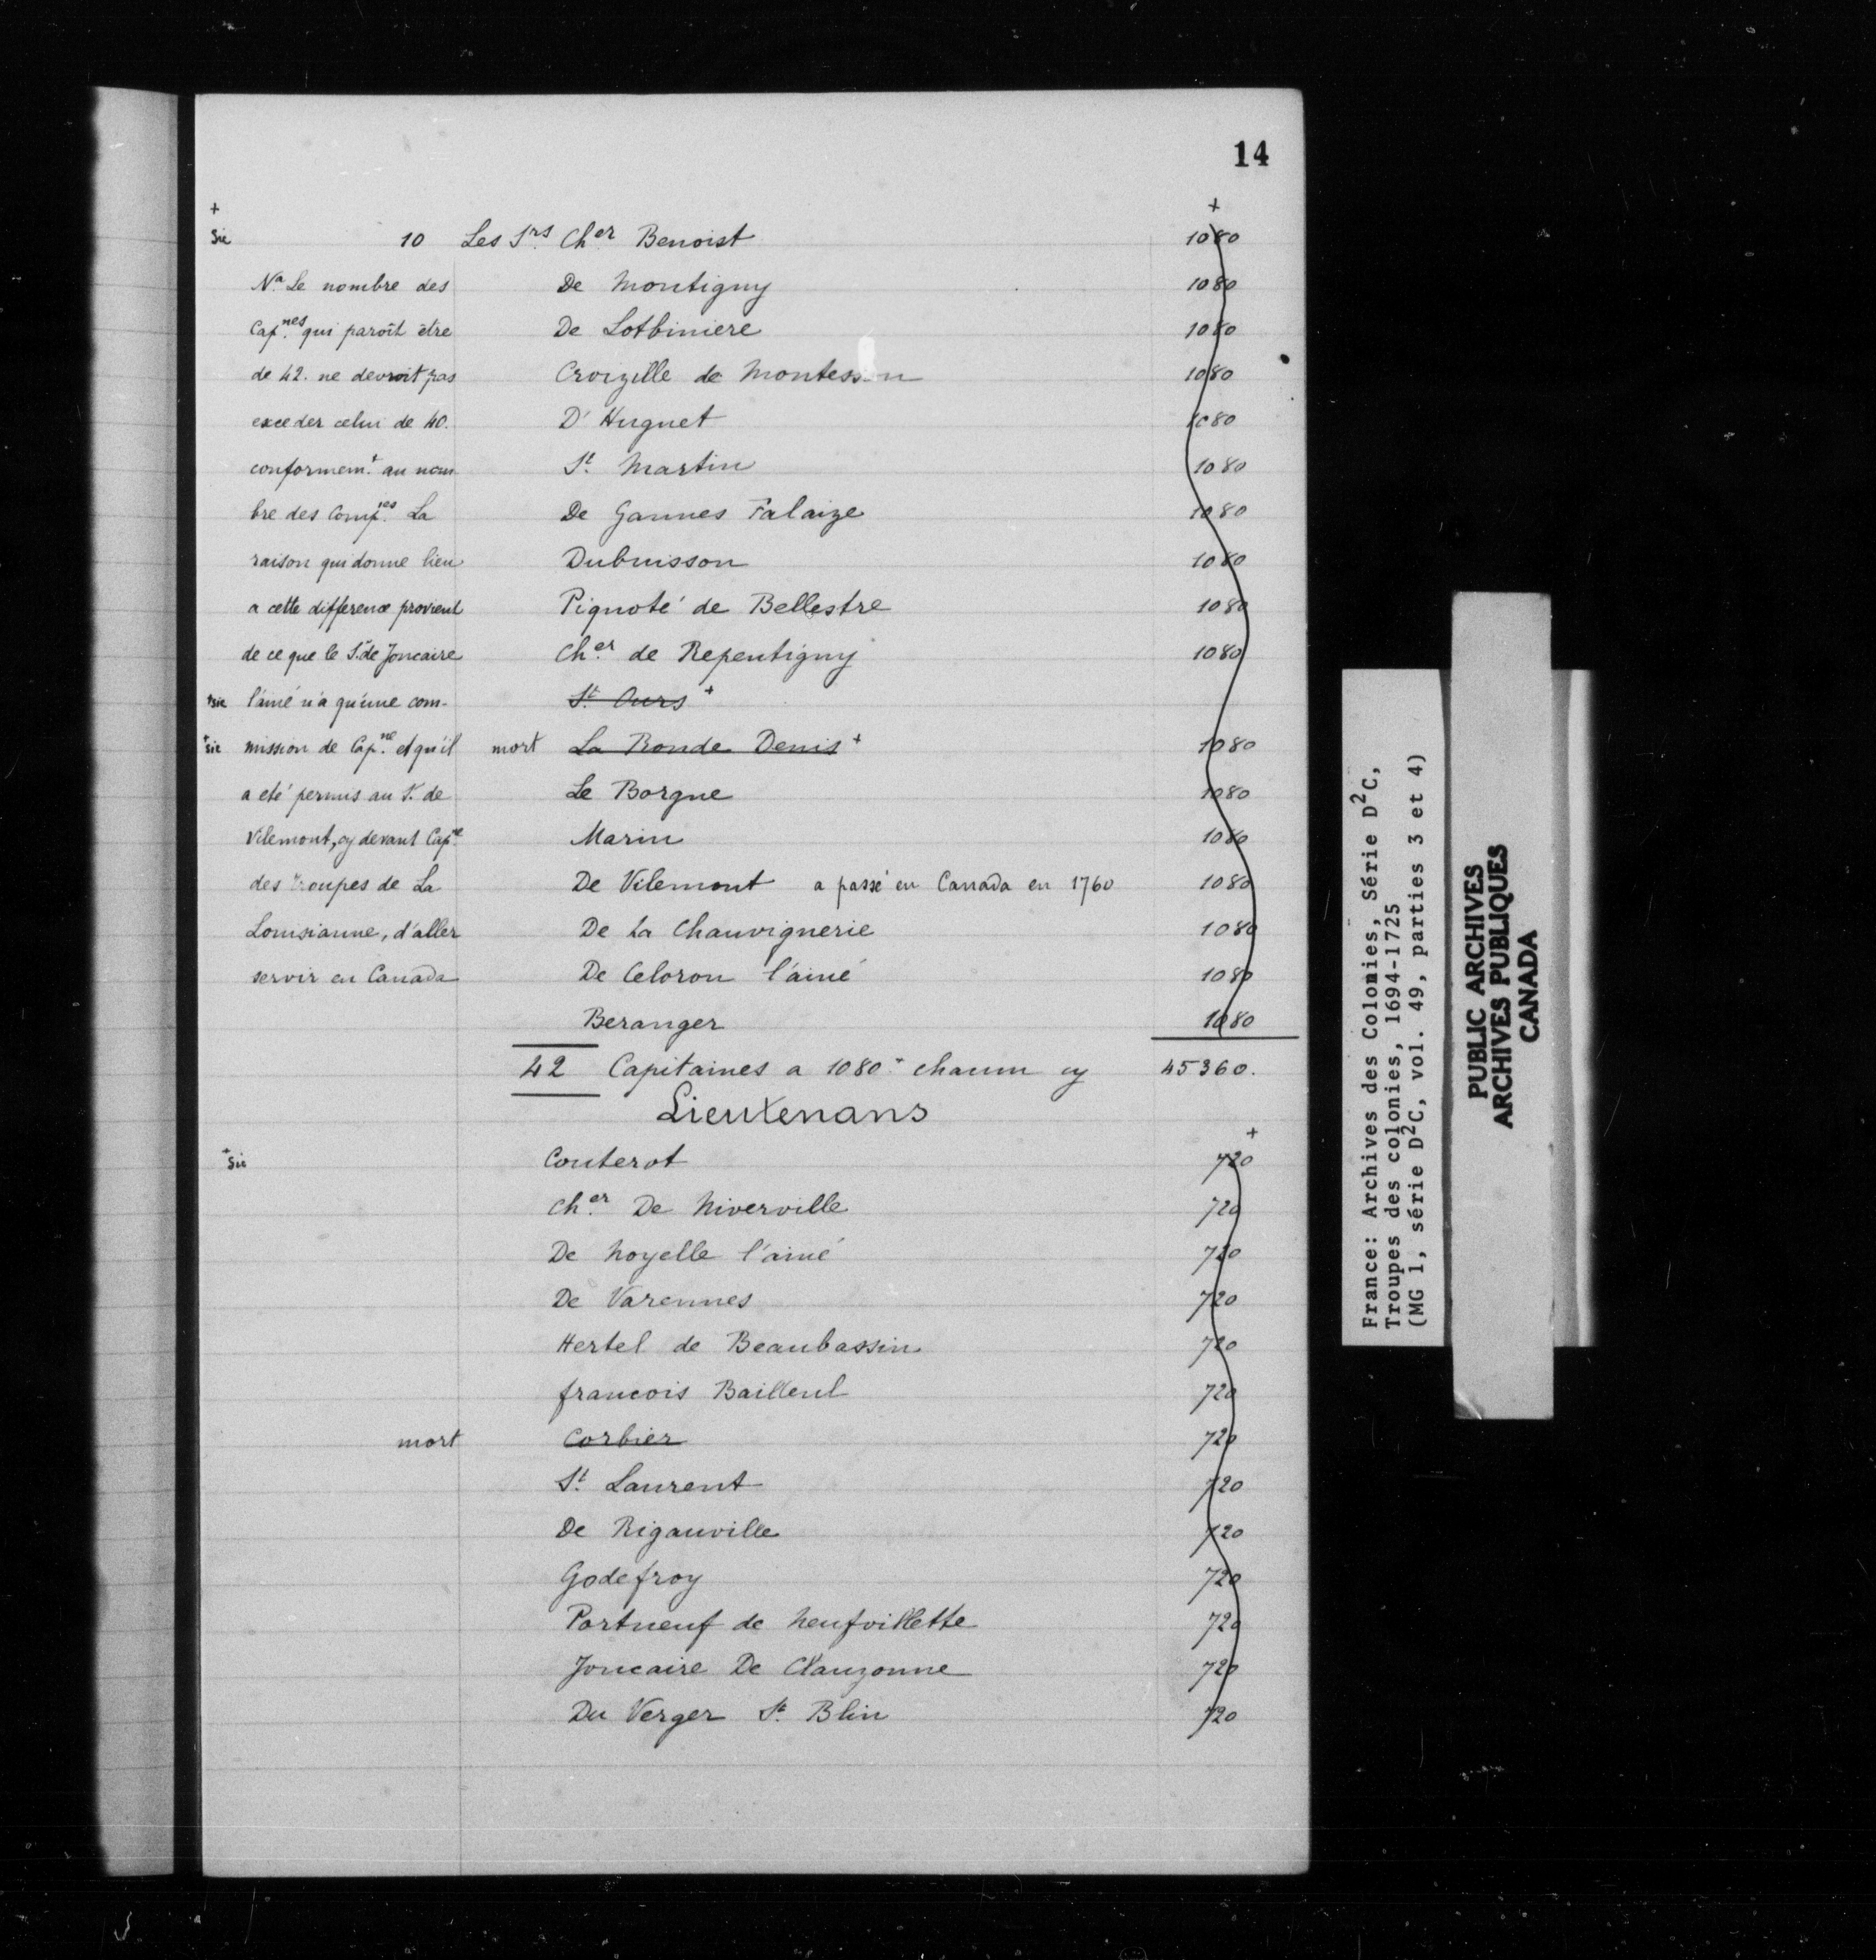 14
+ +
Sic 10 Les Srs Cher Benoist 1080
Na Le nombre des De Montigny 1080
Capnes qui paroît être De Lotbiniere 1080
de 42. ne devroit pas Croizille de Montesson 1080
exceder celui de 40. D'Huguet 1080
conformemt au nom- St Martin 1080
bre des Compies La De Gannes Falaize 1080
raison qui donne lieu Dubuisson 1080
a cette difference provient Pignoté de Bellestre 1080
de ce que le S. de Joncaire Cher de Repentigny 1080
+sic l'ainé n'a qu'une com- St Ours +
+sic mission de Capne et qu'il mort La Ronde Denis + 1080
a eté permis au S. de Le Borgne 1080
Vilemont, cy devant Capne Marin 1080
des Troupes de La De Vilemont a passé en Canada en 1760 1080
Louisianne, d'aller De La Chauvignerie 1080
servir en Canada De Celoron l'ainé 1080
Beranger 1080
42 Capitaines a 1080 chacun cy 45360.
Lieutenans
+
+Sic Couterot 720
Cher De Niverville 720
De Noyelle l'ainé 720
De Varennes 720
Hertel de Beaubassin 720
francois Bailleul 720
mort Corbier 720
St Laurent 720
De Rigauville 720
Godefroy 720
Portneuf de Neufvillette 720
Joncaire De Clauzonne 720
Du Verger St Blin 720
France: Archives des Colonies, Série D2C,
Troupes des colonies, 1694-1725
(MG 1, série D2C, vol. 49, parties 3 et 4)
PUBLIC ARCHIVES
ARCHIVES PUBLIQUES
CANADA